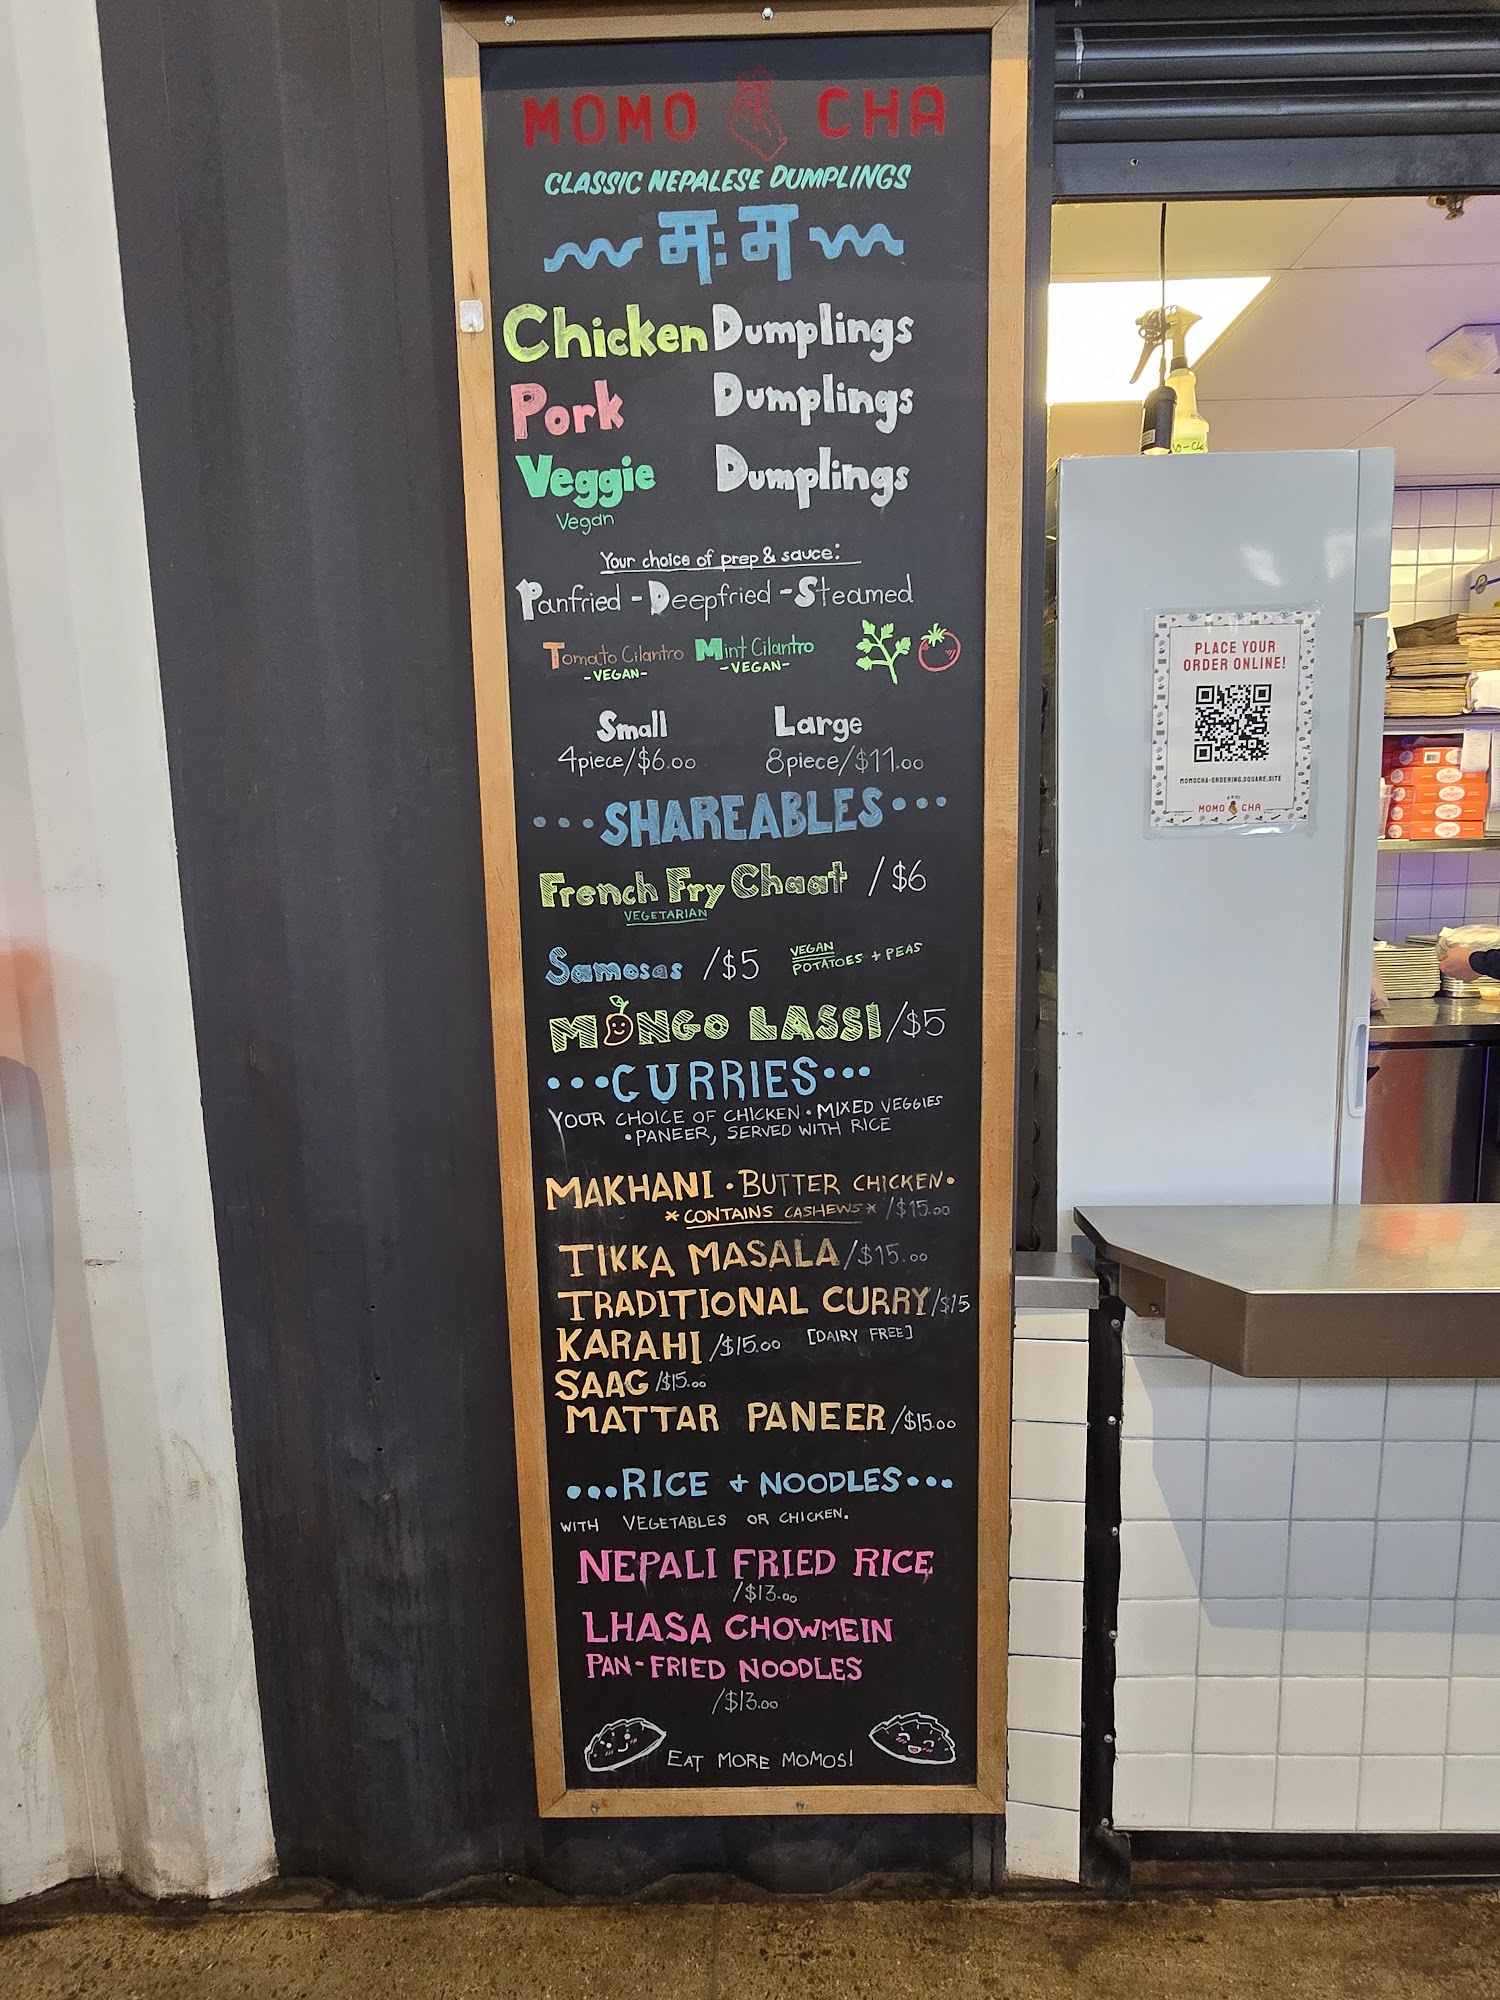 MOMO CHA
CLASSIC NEPALESE DUMPLINGS
म:म
Chicken Dumplings
Pork Dumplings
Veggie Dumplings
Vegan
Your choice of prep & sauce:
Panfried - Deepfried - Steamed
Tomato Cilantro Mint Cilantro
-VEGAN- -VEGAN-
Small Large
4piece/$6.00 8piece/$11.00
•••SHAREABLES•••
French Fry Chaat /$6
VEGETARIAN
Samosas /$5 VEGAN
POTATOES + PEAS
MANGO LASSI/$5
•••CURRIES•••
YOUR CHOICE OF CHICKEN • MIXED VEGGIES
•PANEER, SERVED WITH RICE
MAKHANI • BUTTER CHICKEN•
*CONTAINS CASHEWS* /$15.00
TIKKA MASALA/$15.00
TRADITIONAL CURRY/$15
KARAHI /$15.00 [DAIRY FREE]
SAAG /$15.00
MATTAR PANEER/$15.00
•••RICE + NOODLES•••
WITH VEGETABLES OR CHICKEN.
NEPALI FRIED RICE
/$13.00
LHASA CHOWMEIN
PAN-FRIED NOODLES
/$13.00
EAT MORE MOMOS!
PLACE YOUR
ORDER ONLINE!
MOMOCHA-ORDERING.SQUARE.SITE
MOMO CHA